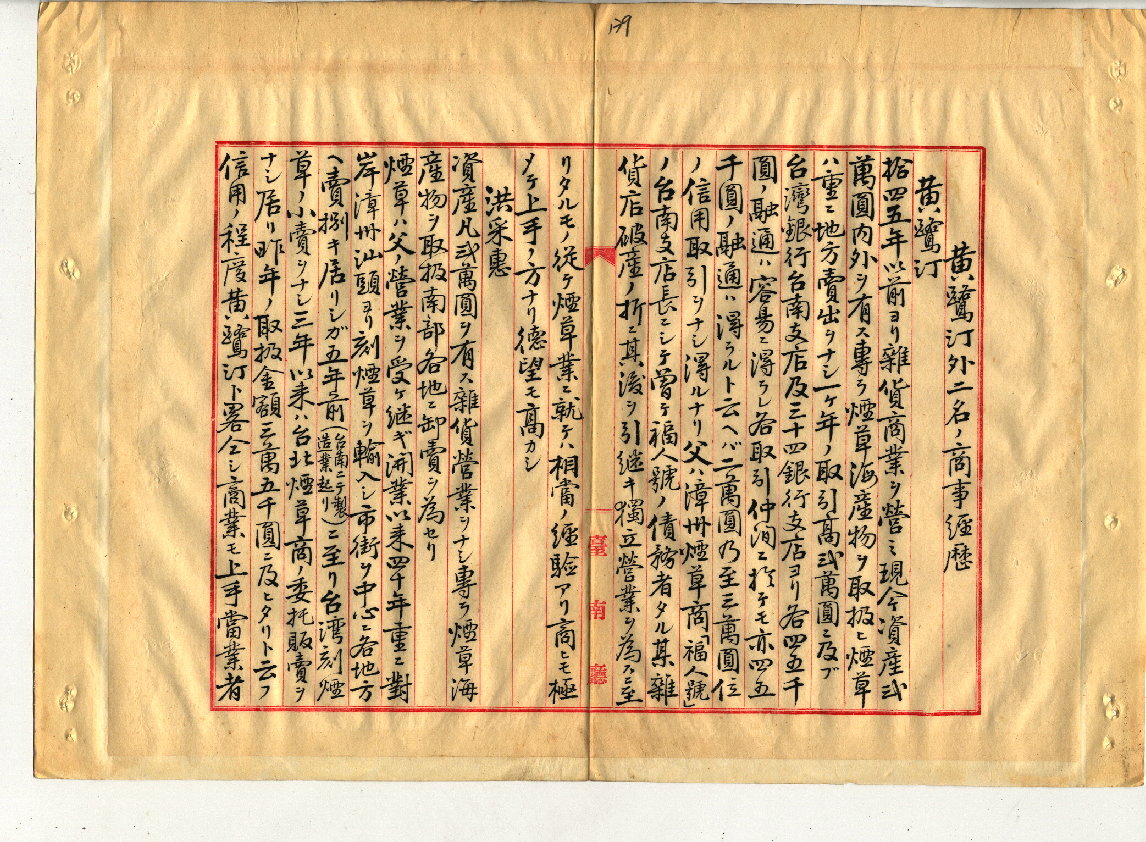 139
黄鷺汀外二名ノ商事経歴
黄鷺汀
拾四五年以前ヨリ雜貨商業ヲ營ミ現今資産弐
萬圓内外ヲ有ス專ラ煙草海産物ヲ取扱ヒ煙草
ハ重ニ地方賣出ヲナシ一ケ年ノ取引高弐萬圓ニ及ブ
台灣銀行台南支店及三十四銀行支店ヨリ各四五千
圓ノ融通ハ容易ニ得ラレ各取引仲間ニ於テモ亦四五
千圓ノ融通ハ得ラルト云ヘバ二萬圓乃至三萬圓位
ノ信用取引ヲナシ得ルナリ父ハ漳州煙草商「福人號」
ノ台南支店長ニシテ曽テ福人號ノ債務者タル某雜
貨店破産ノ折ニ其後ヲ引継キ獨立營業ヲ為スニ至
リタルモノ従テ煙草業ニ就テハ相當ノ経驗アリ商ヒモ極
メテ上手ノ方ナリ德望モ高カシ
洪采惠
資産凡弐萬圓ヲ有ス雜貨營業ヲナシ專ラ煙草海
産物ヲ取扱南部各地ニ卸賣ヲ為セリ
煙草ハ父ノ營業ヲ受ケ継ギ開業以来四十年重ニ對
岸漳州汕頭ヨリ刻煙草ヲ輸入シ市街ヲ中心ニ各地方
ヘ賣捌キ居リシガ五年前(台南ニテ製造業起リ)ニ至リ台湾刻煙
草ノ小賣ヲナシ三年以来ハ台北煙草商ノ委托販賣ヲ
ナシ居リ昨年ノ取扱金額三萬五千圓ニ及ヒタリト云フ
信用ノ程度黄鷺汀ト畧仝シ商業モ上手當業者
臺南廳